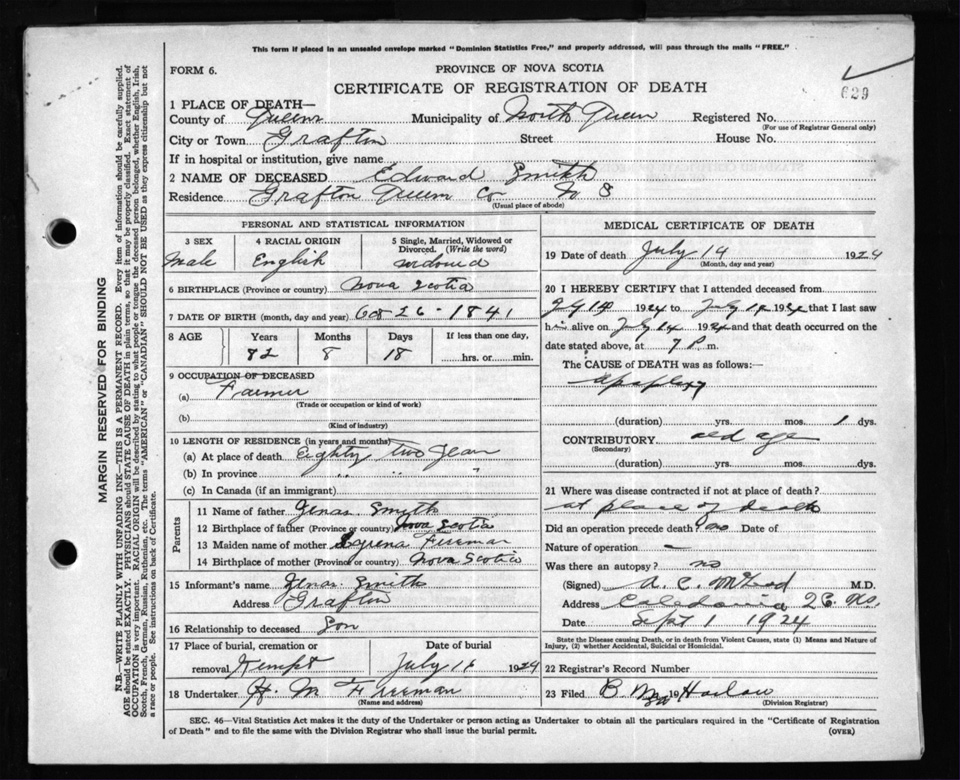 This form if placed in an unsealed envelope marked "Dominion Statistics Free," and properly addressed, will pass through the mails "FREE."
FORM 6.
PROVINCE OF NOVA SCOTIA
629
CERTIFICATE OF REGISTRATION OF DEATH
1 PLACE OF DEATH—
County of Queens Municipality of North Queen Registered No.
(For use of Registrar General only)
City or Town Grafton Street House No.
If in hospital or institution, give name
2 NAME OF DECEASED Edward Smith
Residence Grafton Queen Co N S
(Usual place of abode)
PERSONAL AND STATISTICAL INFORMATION
3 SEX 4 RACIAL ORIGIN 5 Single, Married, Widowed or Divorced. (Write the word)
Male English
6 BIRTHPLACE (Province or country) Nova Scotia
7 DATE OF BIRTH (month, day and year) 26-1841
8 AGE Years Months Days If less than one day,
82 8 18 hrs. or min.
9 OCCUPATION OF DECEASED
(a) Farmer
(Trade or occupation or kind of work)
(b)
(Kind of industry)
10 LENGTH OF RESIDENCE (in years and months)
(a) At place of death Eighty two Year
(b) In province " "
(c) In Canada (if an immigrant)
Parents
11 Name of father Zenas Smith
12 Birthplace of father (Province or country) Nova Scotia
13 Maiden name of mother Freeman
14 Birthplace of mother (Province or country) Nova Scotia
15 Informant's name Zenas Smith
Address Grafton
16 Relationship to deceased Son
17 Place of burial, cremation or removal Kempt Date of burial July 16 1924
18 Undertaker H. M Freeman
(Name and address)
MEDICAL CERTIFICATE OF DEATH
19 Date of death July 14 1924
(Month, day and year)
20 I HEREBY CERTIFY that I attended deceased from
14 1924 to July 14 1924 that I last saw
him alive on July 14 1924 and that death occurred on
date stated above, at 7 P. m.
The CAUSE of DEATH was as follows:—
apoplexy
(duration) yrs. mos. 1 dys.
CONTRIBUTORY old age
(Secondary)
(duration) yrs. mos. dys.
21 Where was disease contracted if not at place of death?
at place of death
Did an operation precede death? no Date of
Nature of operation —
Was there an autopsy? no
(Signed) A. C. McLeod M.D.
Address Caledonia, Q C. N.S.
Date Sept 1 1924
State the Disease causing Death, or in death from Violent Causes, state (1) Means and Nature of Injury, (2) whether Accidental, Suicidal or Homicidal.
22 Registrar's Record Number
23 Filed 19 Harlow
(Division Registrar)
SEC. 46—Vital Statistics Act makes it the duty of the Undertaker or person acting as Undertaker to obtain all the particulars required in the "Certificate of Registration
of Death" and to file the same with the Division Registrar who shall issue the burial permit.
(OVER)
MARGIN RESERVED FOR BINDING
N.B.—WRITE PLAINLY WITH UNFADING INK—THIS IS A PERMANENT RECORD. Every item of information should be carefully supplied.
AGE should be stated EXACTLY. PHYSICIANS should STATE CAUSE OF DEATH in plain terms, so that it may be properly classified. Exact statement of
OCCUPATION is very important. RACIAL ORIGIN will be described by stating to what people or tongue the deceased person belonged, whether English, Irish,
Scotch, French, German, Russian, Ruthenian, etc. The terms "AMERICAN" or "CANADIAN" SHOULD NOT BE USED as they express citizenship but not
a race or people. See instructions on back of Certificate.